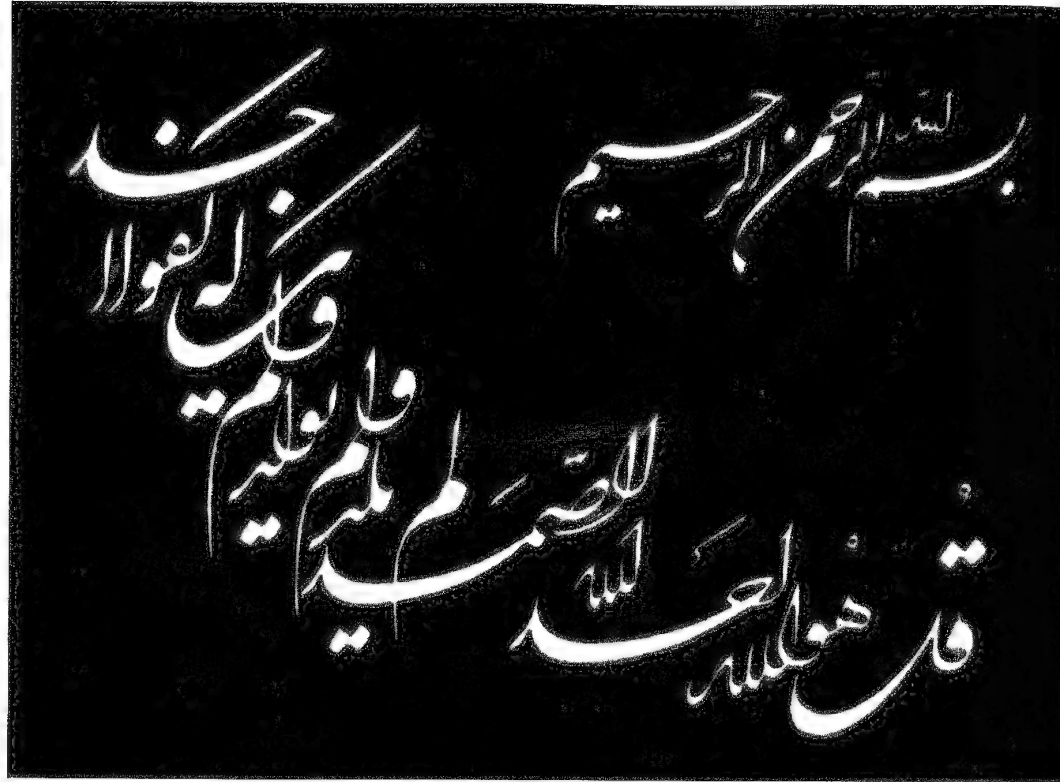 بسم الله الرحمن الرحیم
قل هو الله احد
الله الصمد
لم یلد و لم یولد
و لم یکن له کفوا احد